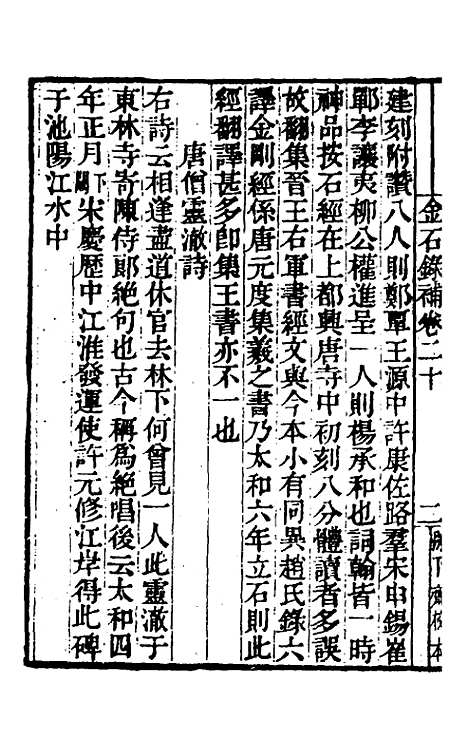 金石錄補卷二十
二
建刻附讚八人則鄭覃王源中許康佐路羣宋申錫崔
鄲李讓夷柳公權進呈一人則楊承和也詞翰皆一時
神品按石經在上都興唐寺中初刻八分體讀者多誤
故翻集晉王右軍書經文與今本小有同異趙氏錄六
譯金剛經係唐元度集羲之書乃太和六年立石則此
經翻譯甚多卽集王書亦不一也
唐僧靈澈詩
右詩云相逢盡道休官去林下何曾見一人此靈澈于
東林寺寄陳侍郎絶句也古今稱爲絶唱後云太和四
年正月𠜇下宋慶歷中江淮發運使許元修江岸得此碑
于池陽江水中